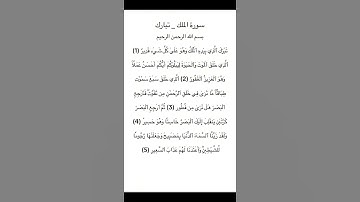 سورة الملك _ تبارك
بسم الله الرحمن الرحيم
تَبَٰرَكَ ٱلَّذِي بِيَدِهِ ٱلۡمُلۡكُ وَهُوَ عَلَىٰ كُلِّ شَيۡءٖ قَدِيرٌ (1)
ٱلَّذِي خَلَقَ ٱلۡمَوۡتَ وَٱلۡحَيَوٰةَ لِيَبۡلُوَكُمۡ أَيُّكُمۡ أَحۡسَنُ عَمَلٗاۚ
وَهُوَ ٱلۡعَزِيزُ ٱلۡغَفُورُ (2) ٱلَّذِي خَلَقَ سَبۡعَ سَمَٰوَٰتٖ
طِبَاقٗاۖ مَّا تَرَىٰ فِي خَلۡقِ ٱلرَّحۡمَٰنِ مِن تَفَٰوُتٖۖ فَٱرۡجِعِ
ٱلۡبَصَرَ هَلۡ تَرَىٰ مِن فُطُورٖ (3) ثُمَّ ٱرۡجِعِ ٱلۡبَصَرَ
كَرَّتَيۡنِ يَنقَلِبۡ إِلَيۡكَ ٱلۡبَصَرُ خَاسِئٗا وَهُوَ حَسِيرٞ (4)
وَلَقَدۡ زَيَّنَّا ٱلسَّمَآءَ ٱلدُّنۡيَا بِمَصَٰبِيحَ وَجَعَلۡنَٰهَا رُجُومٗا
لِّلشَّيَٰطِينِۖ وَأَعۡتَدۡنَا لَهُمۡ عَذَابَ ٱلسَّعِيرِ (5)